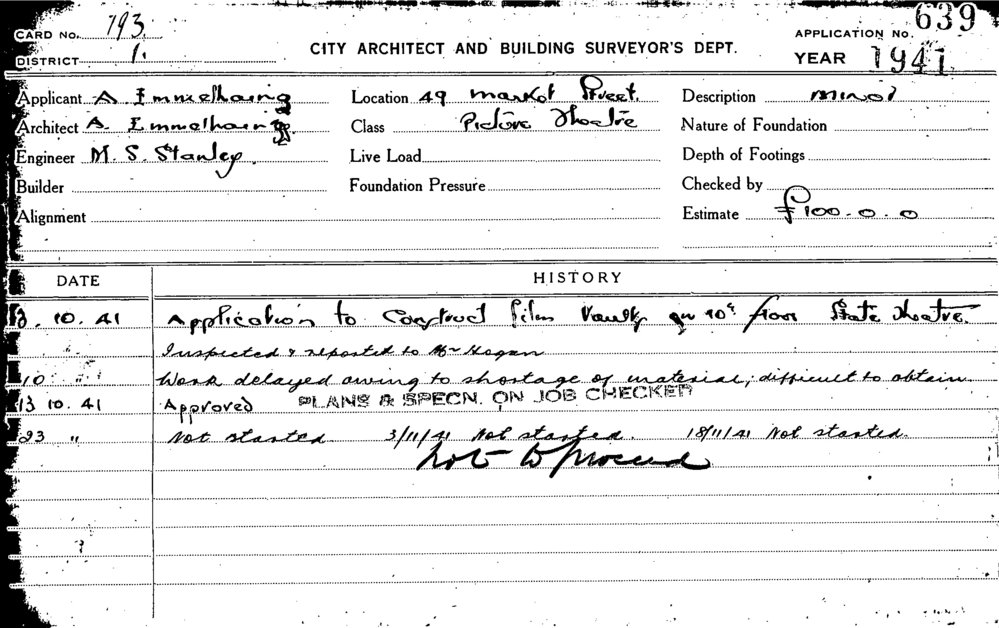 CARD No. 793 APPLICATION No. 639
DISTRICT 1. CITY ARCHITECT AND BUILDING SURVEYOR'S DEPT. YEAR 1941
Applicant A Location 49 Market Street. Description minor
Architect A. Class Picture Theatre Nature of Foundation
Engineer M. S. Stanley. Live Load Depth of Footings
Builder Foundation Pressure Checked by
Alignment Estimate £100.0.0
DATE HISTORY
10.41 Application to Construct film Vaults on 10th floor State Theatre.
Inspected & reported to Mr Hogan
10 " Work delayed owing to shortage of material, difficult to obtain.
13 10.41 Approved PLANS & SPECN. ON JOB CHECKED
23 " Not started 3/11/41 Not started. 18/11/41 Not started.
Not to proceed